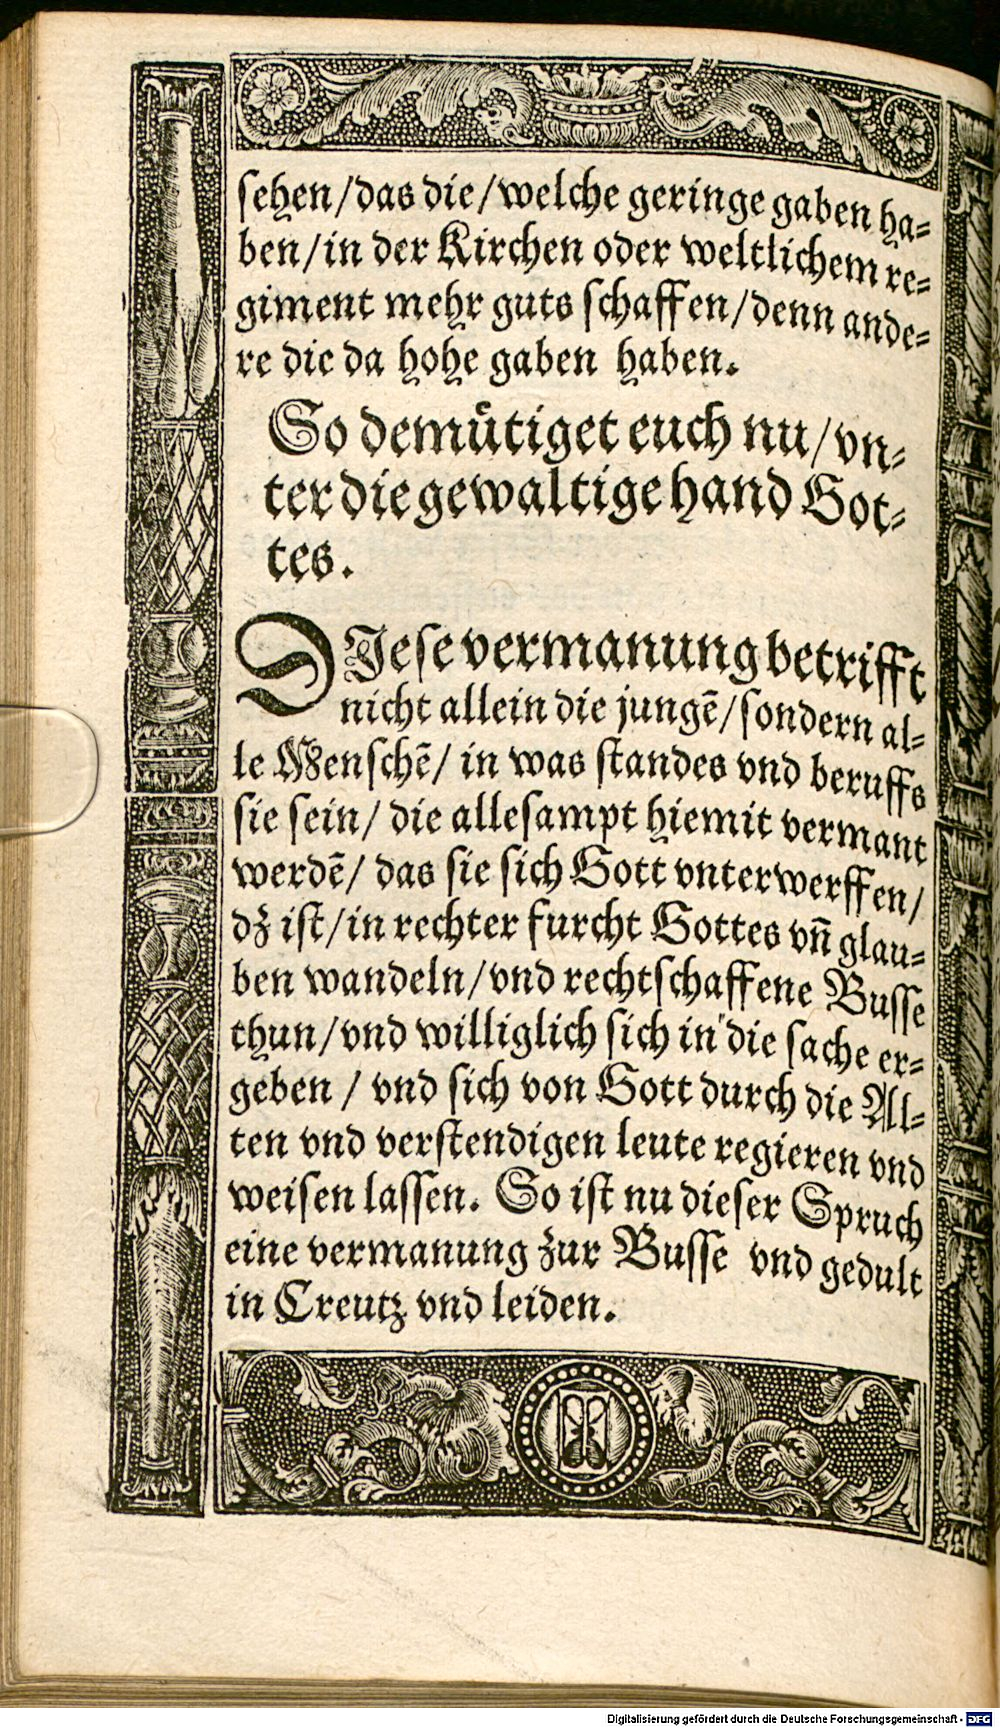 sehen/das die/welche geringe gaben ha⸗
ben/in der Kirchen oder weltlichem re⸗
giment mehr guts schaffen/denn ande⸗
re die da hohe gaben haben.
So demütiget euch nu/vn⸗
ter die gewaltige hand Got⸗
tes.
DJese vermanung betrifft
nicht allein die jungē/sondern al⸗
le Menschē/ in was standes vnd beruffs
sie sein/ die allesampt hiemit vermant
werdē/ das sie sich Gott vnterwerffen/
dz ist/in rechter furcht Gottes vn̄ glau⸗
ben wandeln/vnd rechtschaffene Busse
thun/vnd williglich sich in die sache er⸗
geben / vnd sich von Gott durch die Al⸗
ten vnd verstendigen leute regieren vnd
weisen lassen. So ist nu dieser Spruch
eine vermanung zur Busse vnd gedult
in Creutz vnd leiden.
Digitalisierung gefördert durch die Deutsche Forschungsgemeinschaft - DFG